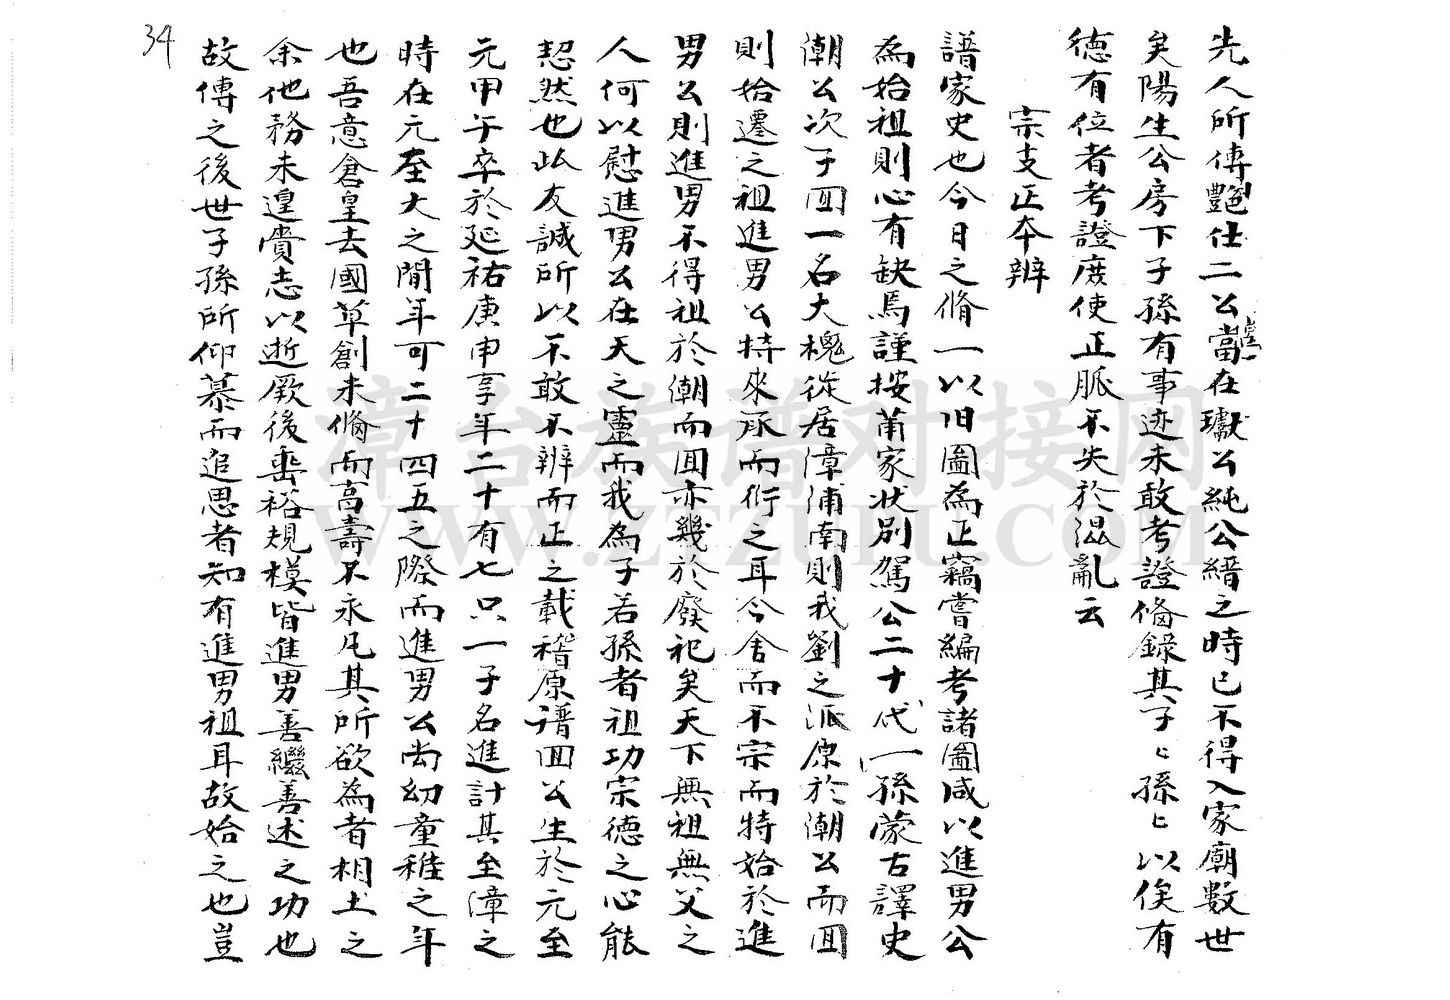 34
先人所傳艷仕二公當在璥公純公縉之時已不得入家廟數世
矣陽生公房下子孫有事迹未敢考證備錄其子〻孫〻以俟有
德有位者考證庶使正脈不失於混亂云
宗支正夲辨
譜家史也今日之脩一以旧圖為正竊嘗編考諸圖咸以進男公
為始祖則心有缺焉謹按莆家状別駕公二十代一孫蒙古譯史
潮公次子囬一名大槐從居漳浦南則我劉之派原於潮公而囬
則始遷之祖進男公特來承而衍之耳今舍而不宗而特始於進
男公則進男不得祖於潮而囬亦幾於廢祀矣天下無祖無父之
人何以慰進男公在天之靈而我為子若孫者祖功宗德之心能
恝然也此友誠所以不敢不辨而正之載稽原譜囬公生於元至
元甲午卒於延祐庚申享年二十有七只一子名進計其至漳之
時在元至大之間年可二十四五之際而進男公尚幼童稚之年
也吾意倉皇去國草創未脩而高壽不永凡其所欲為者相土之
余他務未遑賫志以逝厥後垂裕規模皆進男善繼善述之功也
故傳之後世子孫所仰慕而追思者知有進男祖耳故始之也豈
漳台族谱对接网
www.ztzupu.com